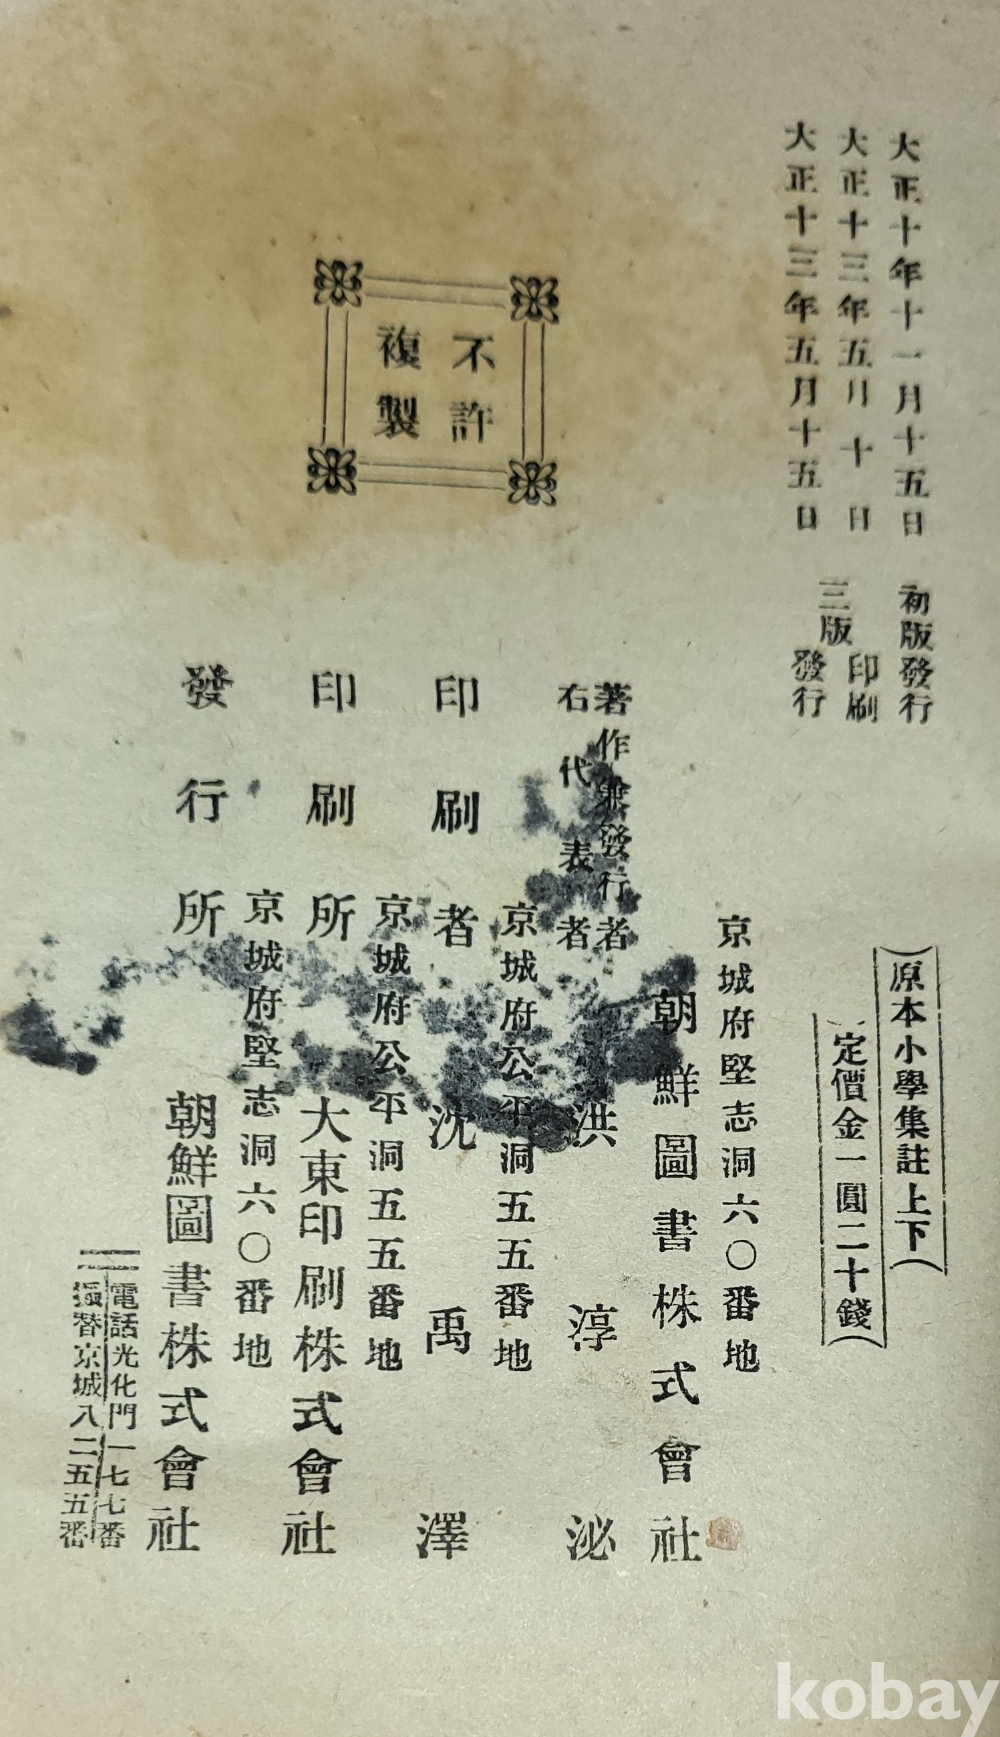 大正十年十一月十五日 初版發行
大正十三年五月十日 三版印刷
大正十三年五月十五日 發行
原本小學集註上下
定價金一圓二十錢
不許
複製
京城府堅志洞六〇番地
著作兼發行者 朝鮮圖書株式會社
右代表者 洪淳泌
京城府公平洞五五番地
印刷者 沈禹澤
京城府公平洞五五番地
印刷所 大東印刷株式會社
京城府堅志洞六〇番地
發行所 朝鮮圖書株式會社
電話光化門一七七番
振替京城八二五五番
kobay